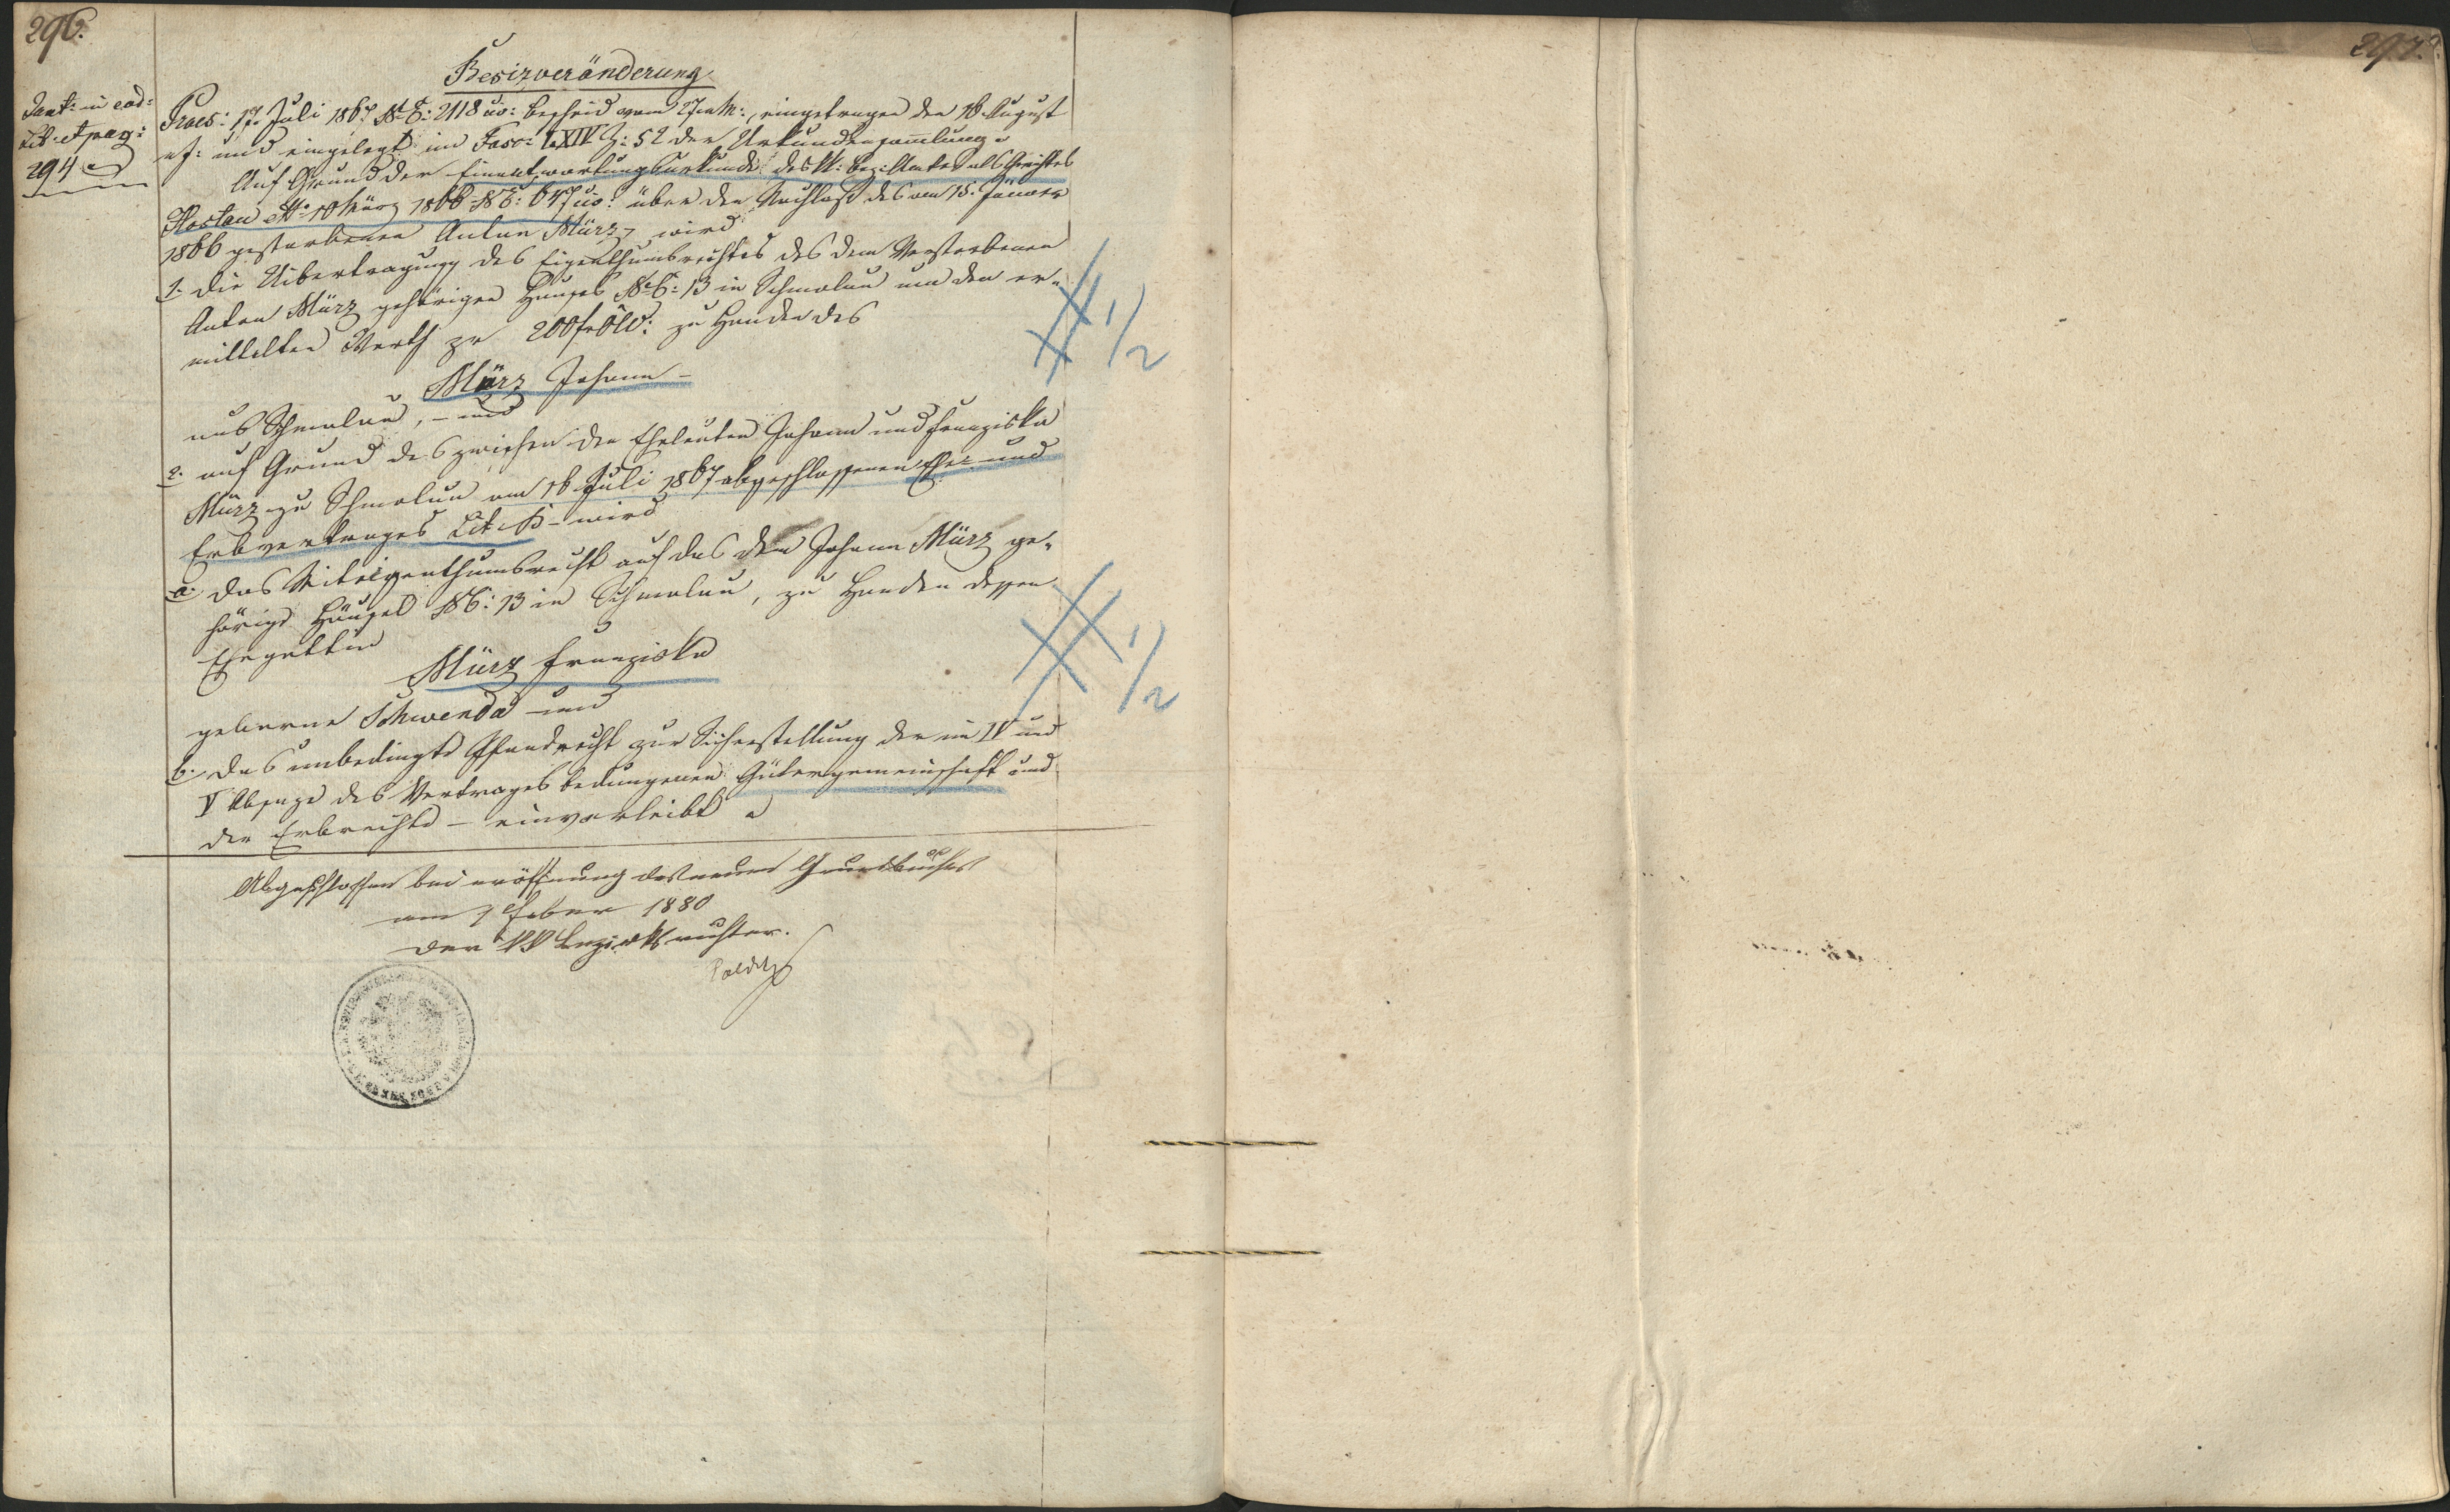 296.
297.
Besizveränderung
Tant: in eod:
Lib: et pag:
294
Praes: 17. Juli 1867 NE: 2118 civ: Bescheid vom 27 e.M:, eingetragen den 16. August
ej: und eingelegt im Fasc: LXIV Z: 52 der Urkundensam̄lung.
Auf Grund der Einantwortungsurkunde des k: Bez: Amtes als Gerichtes
Hostau ddto 10 März 1866 NE: 647 civ: über den Nachlaß des am 15. Jänner
1866 gestorbenen Anton März, wird
1. die Uibertragung des Eigenthumsrechtes des dem Verstorbenen
Anton März gehörigen Hauses NC: 13 in Schmolau um den er-
mittelten Werth pr 200 f ÖW: zu Handen des
März Johann -
aus Schmolau, - und
2. auf Grund des zwischen den Eheleuten Johann und Franziska
März zu Schmolau am 16 Juli 1867 abgeschlossenen Ehe- und
Erbvertrages Lit: B - wird
a. das Miteigenthumsrecht auf das dem Johann März ge-
hörige Häusel NC: 13 in Schmolau, zu Handen dessen
Ehegattin
März Franziska
geborne Schwenda und
b. das unbedingte Pfandrecht zur Sicherstellung der im IV und
V Absaze des Vertrages bedungenen Gütergemeinschaft und
der Erbrechte - einverleibt
# 1/2
# 1/2
Abgeschlossen bei Eröffnung des neuen Grundbuches
am 1 Feber 1880
Der kk Bezirksrichter.